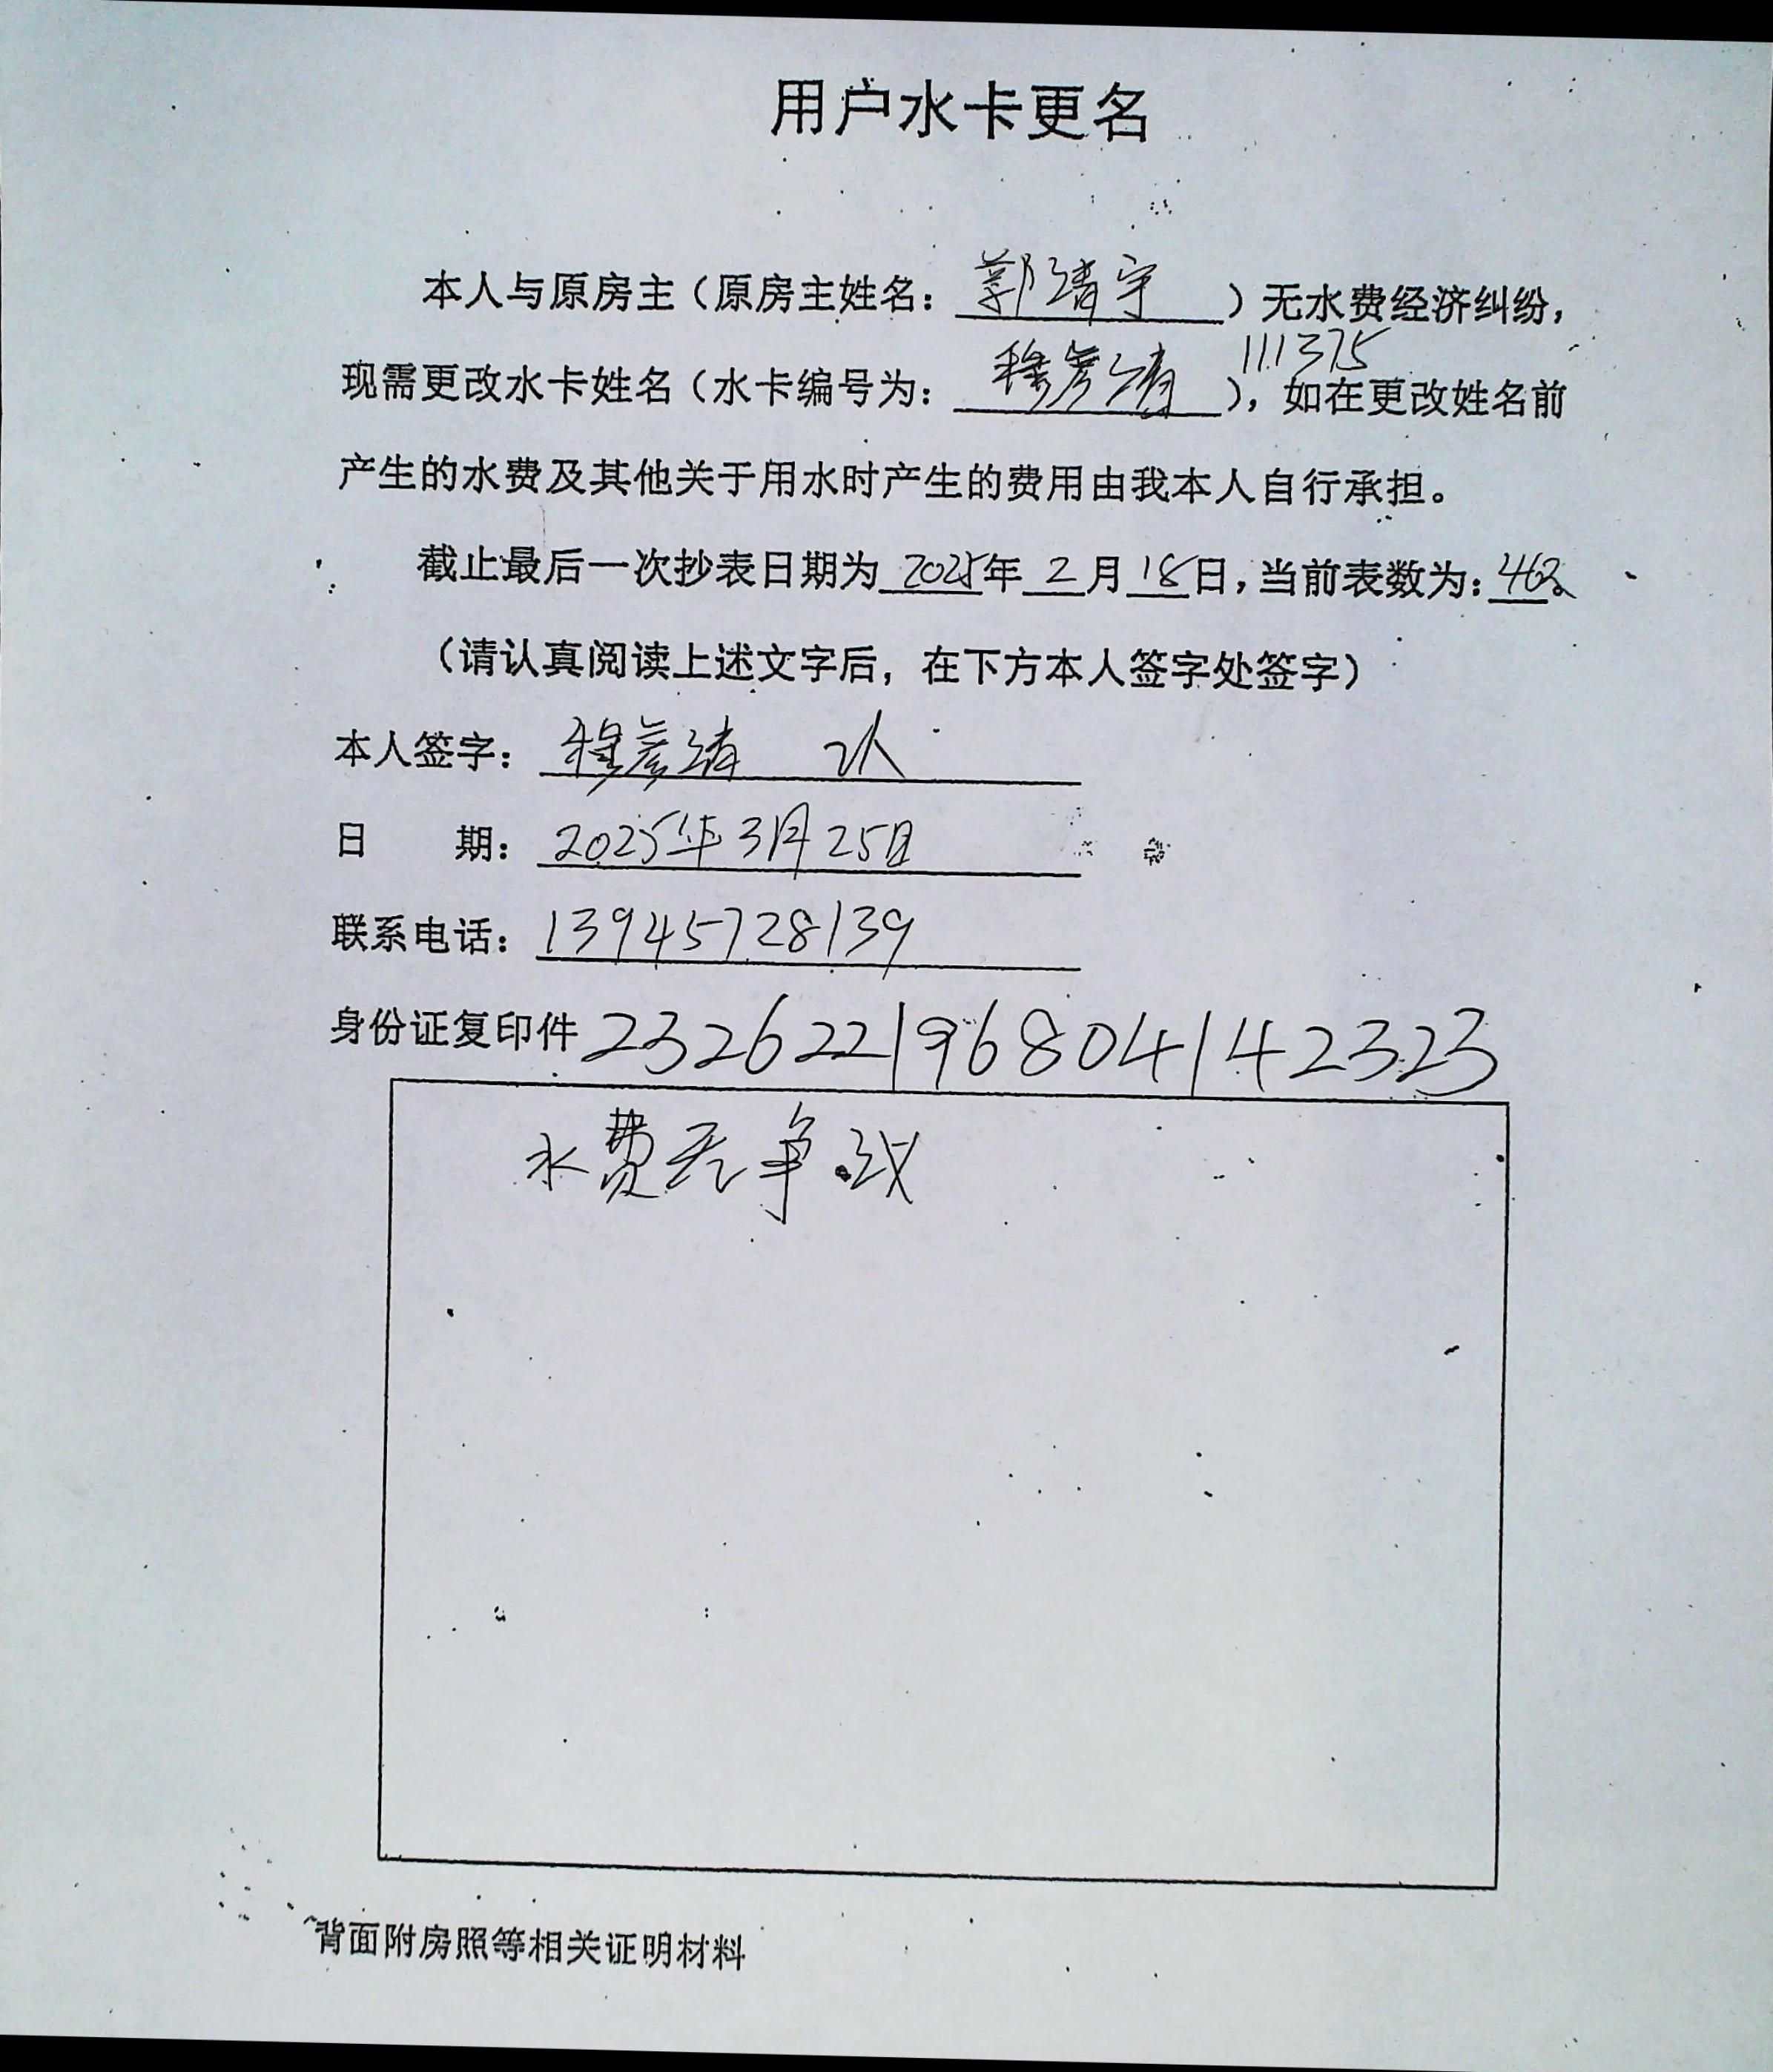 用户水卡更名
本人与原房主（原房主姓名：郭清宇）无水费经济纠纷，
111375
现需更改水卡姓名（水卡编号为：穆彦清），如在更改姓名前
产生的水费及其他关于用水时产生的费用由我本人自行承担。
截止最后一次抄表日期为2025年2月18日，当前表数为：462。
（请认真阅读上述文字后，在下方本人签字处签字）
本人签字：穆彦清
日 期：2025年3月25日
联系电话：13945728139
身份证复印件 232622196804142323
水费无争议
背面附房照等相关证明材料